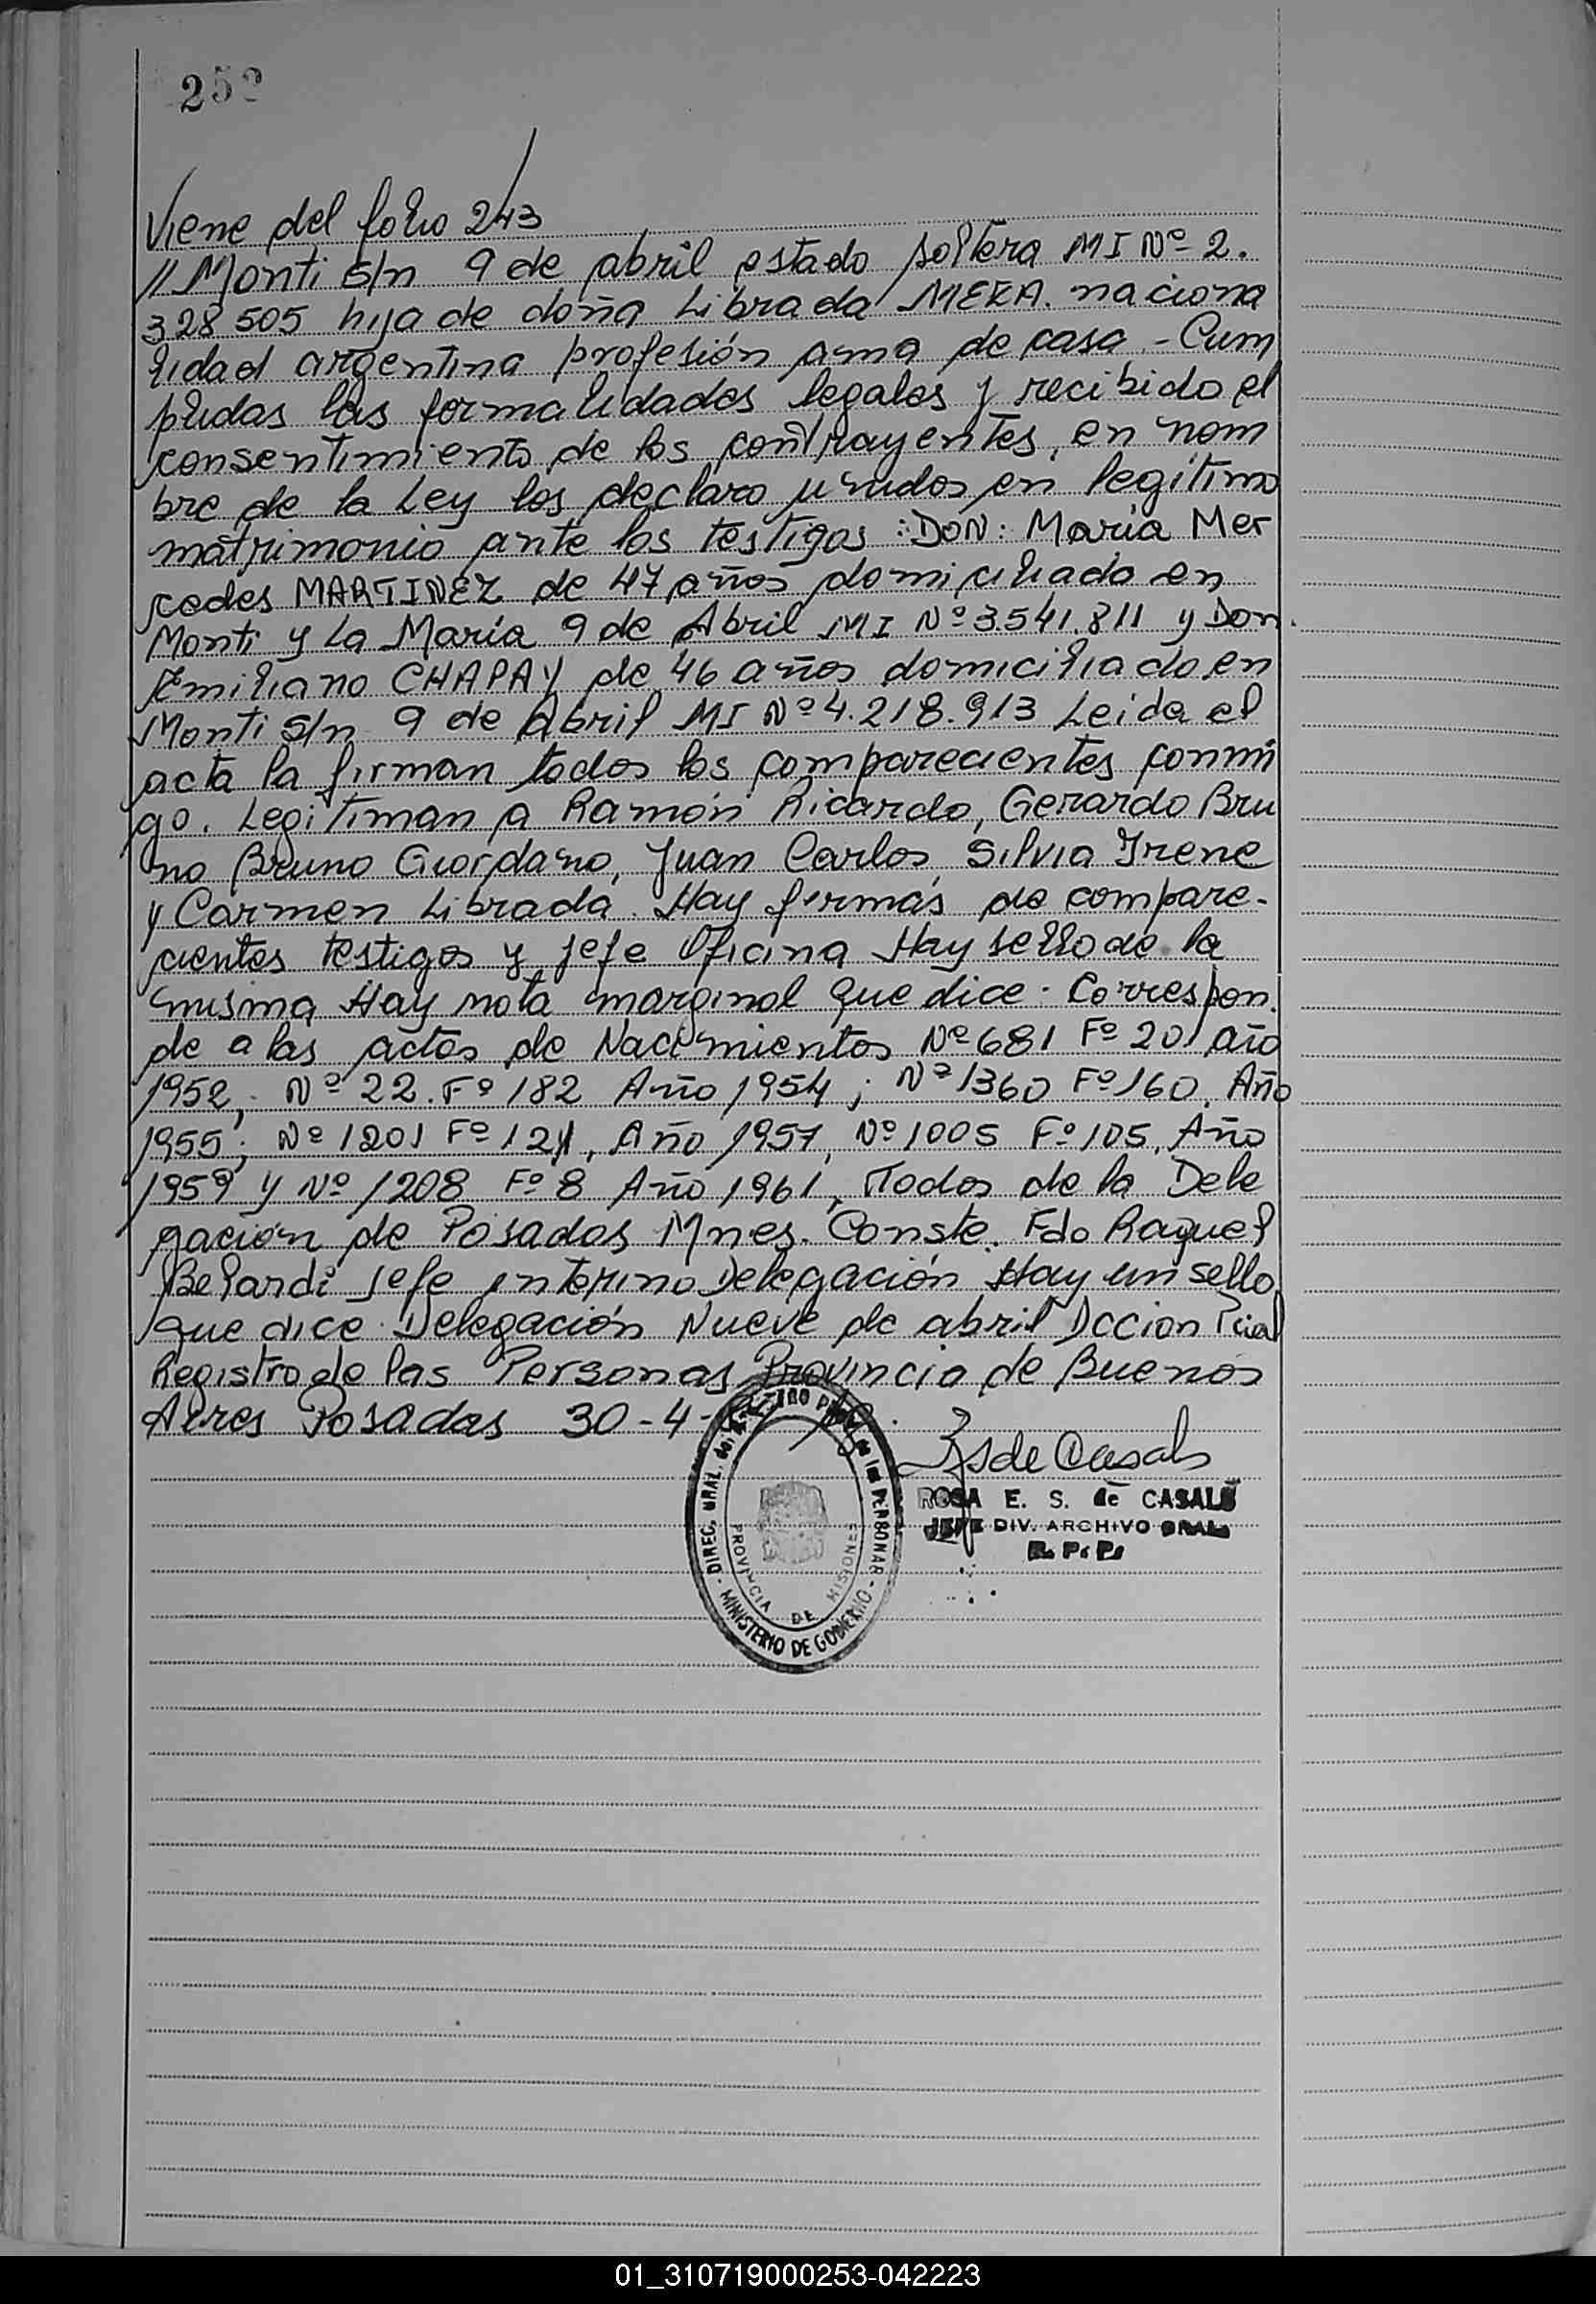 252
Viene del folio 243
// Monti s/n 9 de abril estado soltera MI Nº 2.
328 505 hija de doña Librada MEZA. naciona
lidad argentina profesión ama de casa.- Cum
plidas las formalidades legales y recibido el
consentimiento de los contrayentes, en nom
bre de la Ley los declaro unidos en legítimo
matrimonio ante los testigos: DON: María Mer
cedes MARTINEZ de 47 años domiciliado en
Monti y La María 9 de Abril MI Nº 3.541.811 y Don
Emiliano CHAPAY de 46 años domiciliado en
Monti s/n 9 de Abril MI Nº 4.218.913 Leida el
acta la firman todos los comparecientes conmi
go. Legitiman a Ramón Ricardo, Gerardo Bru
no Bruno Giordano, Juan Carlos, Silvia Irene
y Carmen Librada. Hay firmas de compare-
cientes testigos y jefe Oficina Hay sello de la
misma Hay nota marginal que dice: Correspon
de a las actas de Nacimientos Nº 681 Fº 201 año
1952; Nº 22. Fº 182 Año 1954; Nº 1360 Fº 160. Año
1955; Nº 1201 Fº 121, Año 1957, Nº 1005 Fº 105, Año
1959 y Nº 1208 Fº 8 Año 1961, Todos de la Dele
gación de Posadas Mnes. Conste. Fdo Raquel
Belardi Jefe interino Delegación Hay un sello
que dice Delegación Nueve de abril Dccion Pcial
Registro de las Personas Provincia de Buenos
Aires Posadas 30-4-
RS de Casals
ROSA E. S. de CASALS
JEFE DIV. ARCHIVO GRAL.
R. P. P.
DIREC. GRAL. del REGISTRO PROV. de las PERSONAS - MINISTERIO DE GOBIERNO -
PROVINCIA DE MISIONES
01_310719000253-042223